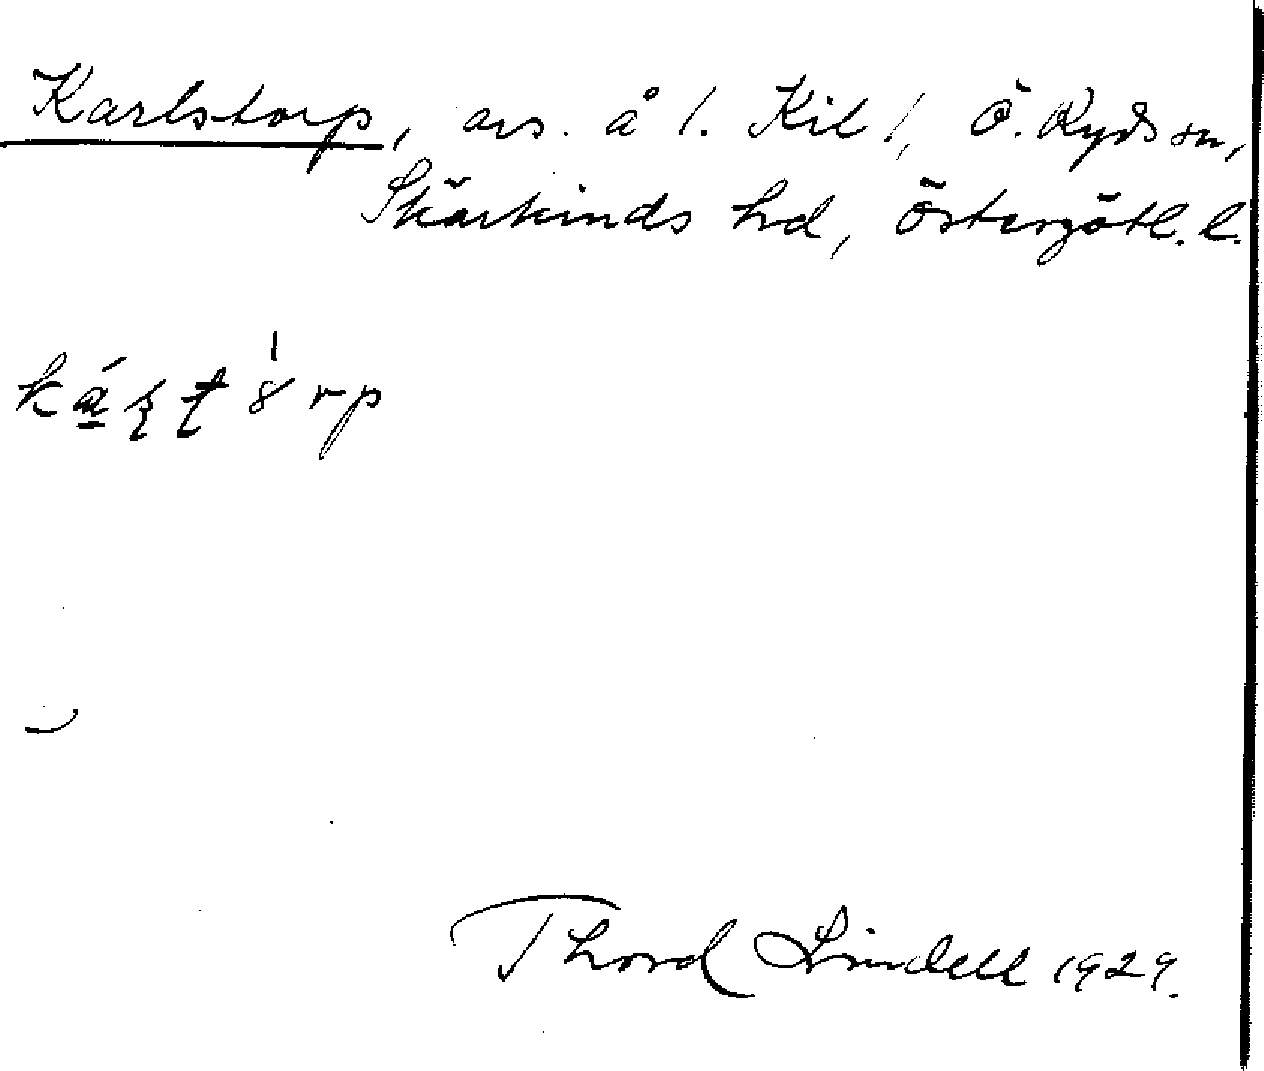 Karlstorp, avs. å 1. Kil 1, Ö. Ryds sn,
Skärkinds hd, Östergötl. l.
Thord Lindell 1929.